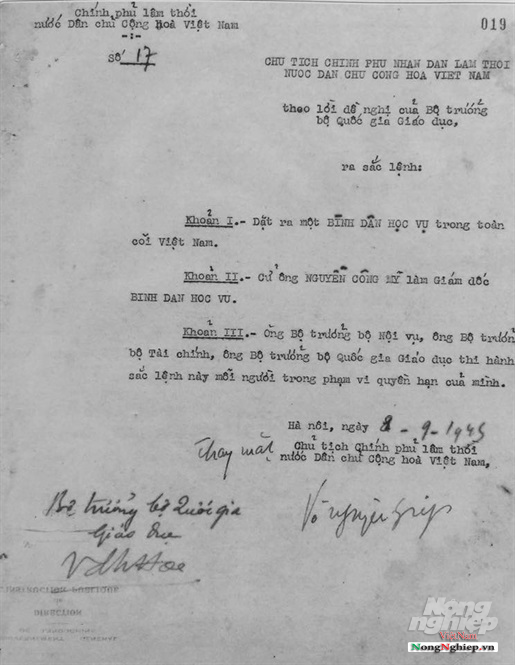 Chính phủ lâm thời
nước Dân chủ Cộng hoà Việt Nam
-:-
SỐ 17
019
CHU TICH CHINH PHU NHAN DAN LAM THOI
NUOC DAN CHU CONG HOA VIET NAM
theo lời đề nghị của Bộ trưởng
bộ Quốc gia Giáo dục,
ra sắc lệnh:
Khoản I.- Đặt ra một BÌNH DÂN HỌC VỤ trong toàn
cõi Việt Nam.
Khoản II.- Cử ông NGUYỄN CÔNG MỸ làm Giám đốc
BINH DAN HOC VU.
Khoản III.- Ông Bộ trưởng bộ Nội vụ, ông Bộ trưởn
bộ Tài chính, ông Bộ trưởng bộ Quốc gia Giáo dục thi hành
sắc lệnh này mỗi người trong phạm vi quyền hạn của mình.
Hà nội, ngày 8-9-1945
Thay mặt Chủ tịch Chính phủ lâm thời
nước Dân chủ Cộng hoà Việt Nam,
Võ Nguyên Giáp
Bộ trưởng bộ Quốc gia
Giáo dục
VĐHHoe
DIRECTION
Nông
nghiệp
Việt Nam
NongNghiep.vn